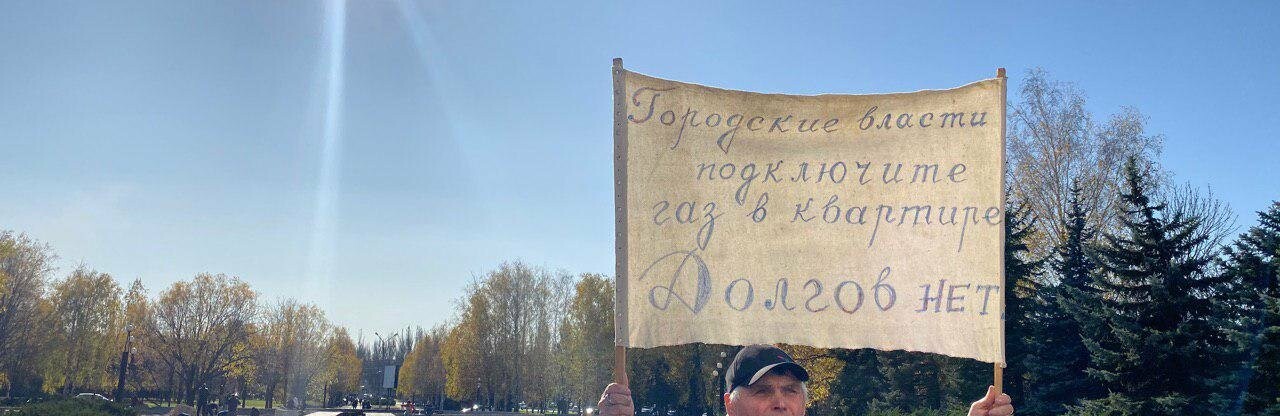 Городские власти
подключите
газ в квартире
Долгов нет